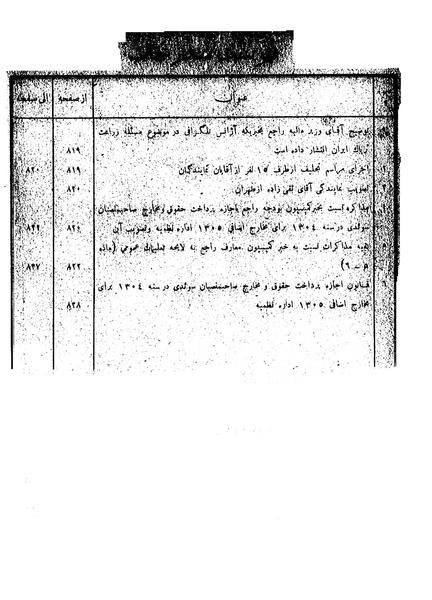 عنوان از صفحه الی صفحه
توضیح آقای وزیر مالیه راجع بخبریکه آژانس تلگرافی در موضوع مسئله زراعت
تریاك ایران انتشار داده است ۸۱۹
اجرای مراسم تحلیف ازطرف ۱۵ نفر از آقایان نمایندگان ۸۱۹ ۸۲۰
تصویب نمایندگی آقای تقی زاده ازطهران ۸۲۰
مذاکره نسبت بخبرکمیسیون بودجه راجع باجازه پرداخت حقوق ومخارج صاحبمنصبان
سوئدی درسنه ۱۳۰۴ برای مخارج اضافی ۱۳۰۵ اداره نظمیه وتصویب آن
بقیه مذاکرات نسبت به خبر کمیسیون معارف راجع به لایحه تعلیمات عمومی (ماده
۶) ۸۲۲ ۸۳۷
قانون اجازه پرداخت حقوق و مخارج صاحبمنصبان سوئدی درسنه ۱۳۰۴ برای
مخارج اضافی ۱۳۰۵ اداره نظمیه ۸۳۸